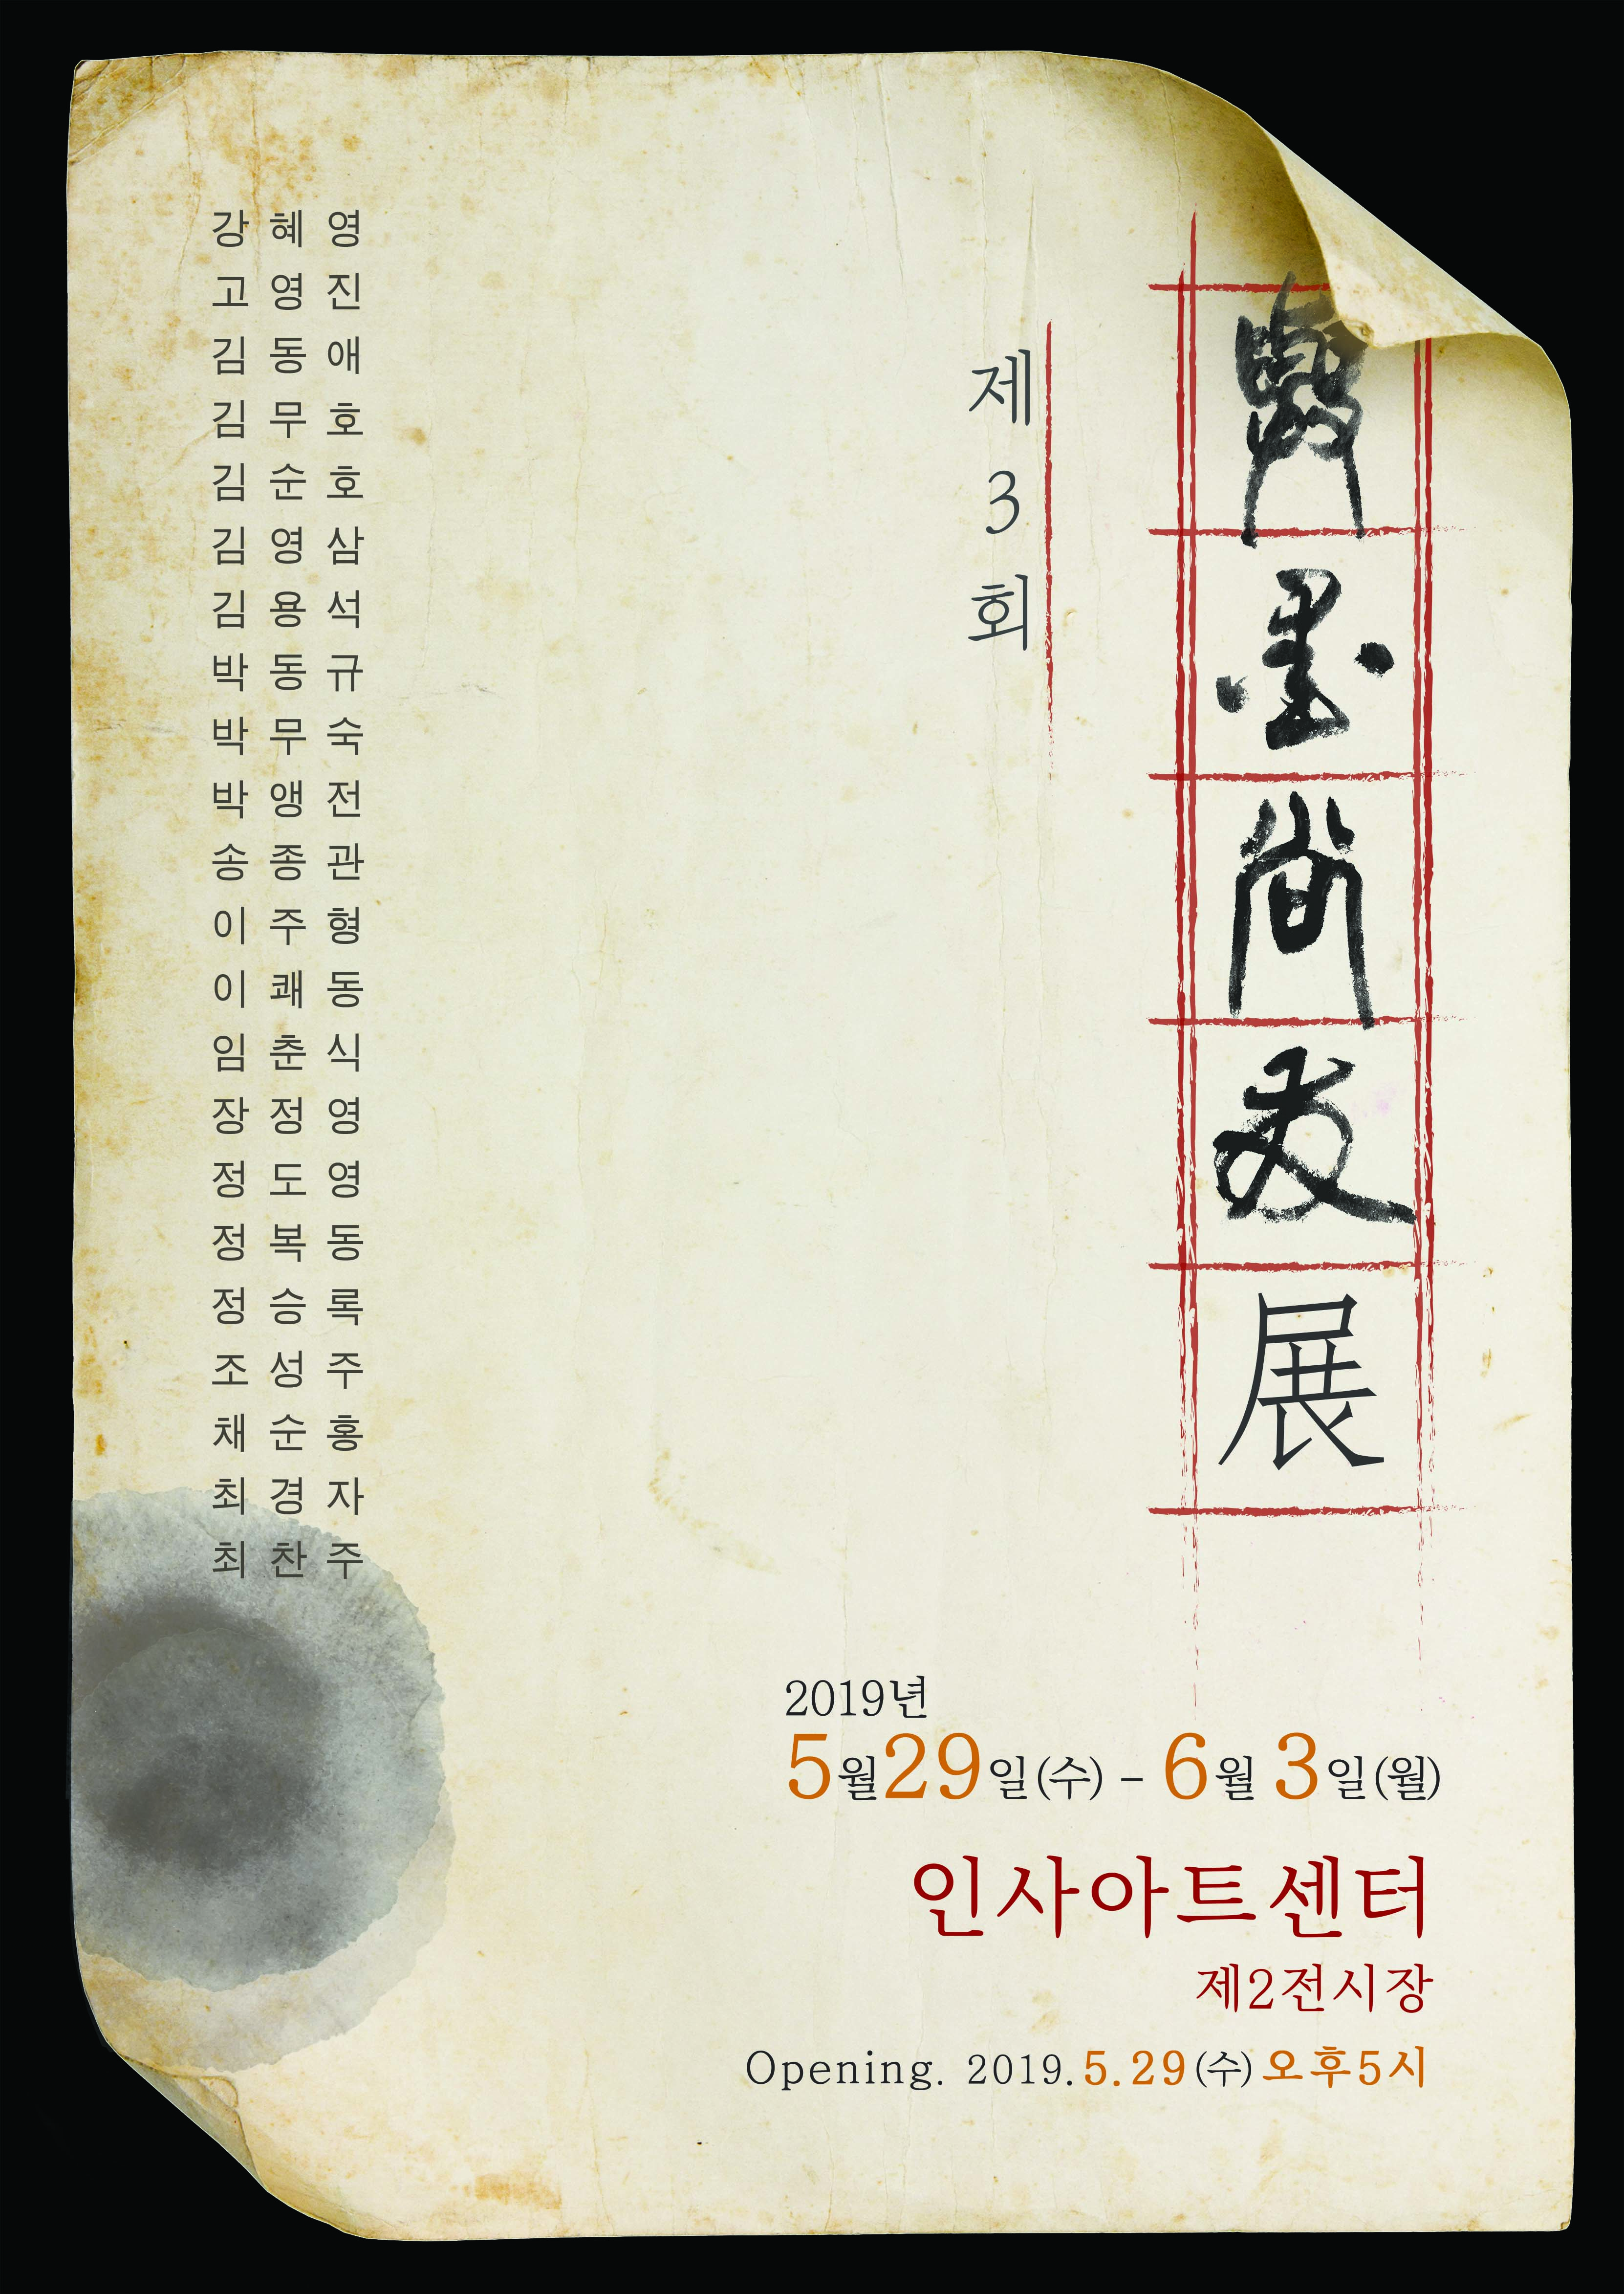 與墨尚友展
제3회
강혜영
고영진
김동애
김무호
김순호
김영삼
김용석
박동규
박무숙
박앵전
송종관
이주형
이쾌동
임춘식
장정영
정도영
정복동
정승록
조성주
채순홍
최경자
최찬주
2019년
5월29일(수) - 6월 3일(월)
인사아트센터
제2전시장
Opening. 2019.5.29(수)오후5시